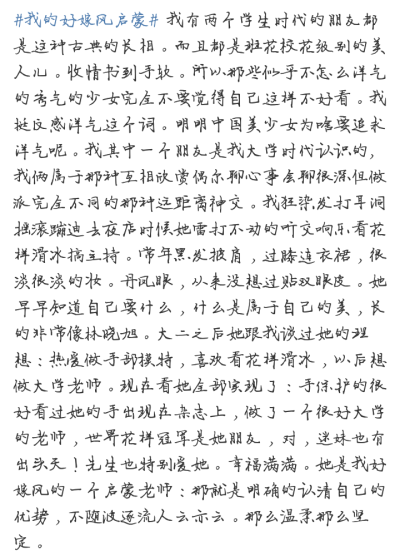 #我的好嫁风启蒙# 我有两个学生时代的朋友都
是这种古典的长相。而且都是班花校花级别的美
人儿。收情书到手软。所以那些似乎不怎么洋气
的秀气的少女完全不要觉得自己这样不好看。我
挺反感洋气这个词。明明中国美少女为啥要追求
洋气呢。我其中一个朋友是我大学时代认识的，
我俩属于那种互相欣赏偶尔聊心事会聊很深但做
派完全不同的那种远距离神交。我狂染发打耳洞
摇滚蹦迪去夜店时候她雷打不动的听交响乐看花
样滑冰搞主持。常年黑发披肩，过膝连衣裙，很
淡很淡的妆。丹凤眼，从来没想过贴双眼皮。她
早早知道自己要什么，什么是属于自己的美，长
的非常像林晓旭。大二之后她跟我谈过她的理
想：热爱做手部模特，喜欢看花样滑冰，以后想
做大学老师。现在看她全部实现了：手保护的很
好看过她的手出现在杂志上，做了一个很好大学
的老师，世界花样冠军是她朋友，对，迷妹也有
出头天！先生也特别爱她。幸福满满。她是我好
嫁风的一个启蒙老师：那就是明确的认清自己的
优势，不随波逐流人云亦云。那么温柔那么坚
定。